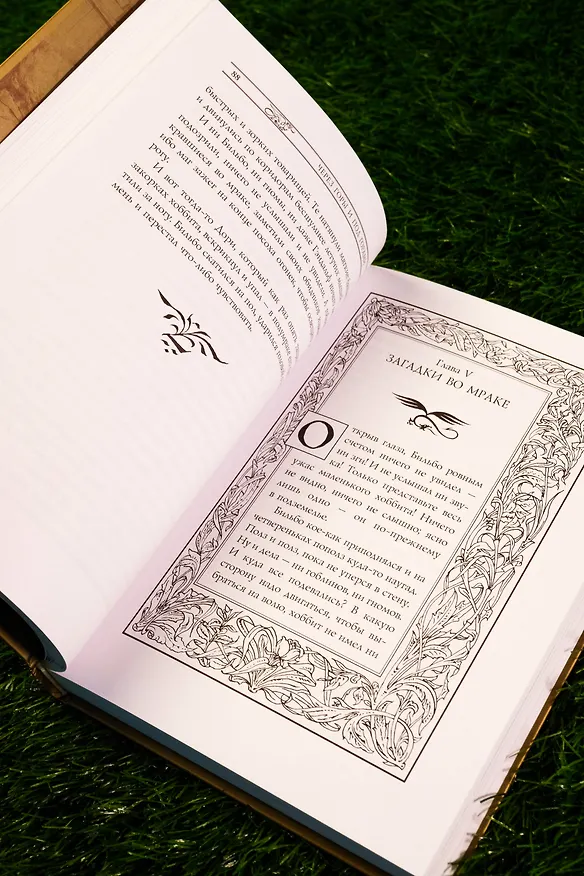 88
ЧЕРЕЗ ГОРЫ И ПОД
быстрых и зорких товарищей. Те натянули
и двинулись по коридорам бесшумнее летучих
И ни Бильбо, ни гномы, ни даже Гэндальф
подозрили, ничего не услышали и не увидели, а
кравшиеся во мраке, заметили своих
ибо маг зажег на конце посоха огонек, чтобы
рогу.
И вот тогда-то Дори, который как раз
закорках хоббита, вскрикнул и упал — в
тили за ногу. Бильбо скатился на пол, ударился
мень и перестал что-либо чувствовать.
Глава V
ЗАГАДКИ ВО МРАКЕ
Открыв глаза, Бильбо ровным
счетом ничего не увидел —
ни зги! И не услышал ни зву-
ка! Только представьте весь
ужас маленького хоббита! Ничего
не видно, ничего не слышно, ясно
лишь одно — он по-прежнему
в подземелье.
Бильбо кое-как приподнялся и на
четвереньках пополз куда-то наугад.
Полз и полз, пока не уперся в стену.
Ну и дела — ни гоблинов, ни гномов.
И куда все подевались? В какую
сторону надо двигаться, чтобы вы-
браться на волю, хоббит не имел ни